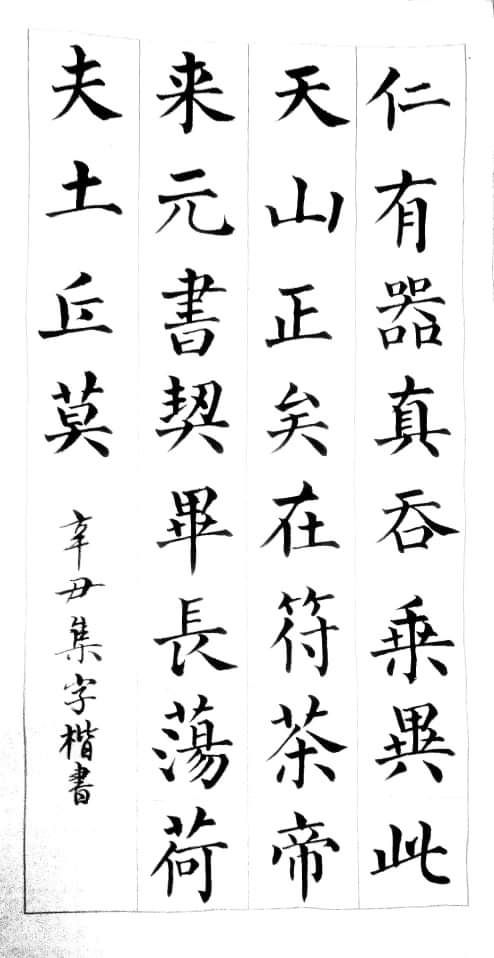 仁有器真吞乗異此
天山正矣在符茶帝
来元書契畢長蕩荷
夫土丘莫
辛丑集字楷書